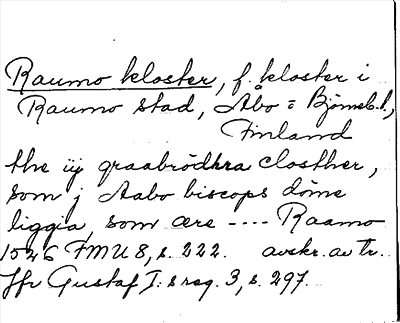 Raumo kloster, f. kloster i
Raumo stad, Åbo = Björneb. l.,
Finland
the iij graabrödhra closther,
som j Aabo biscops döme
liggia, som ære ---- Raamo
1526 FMU 8, s. 222. avskr. av tr.
Jfr Gustaf I:s reg. 3, s. 297.